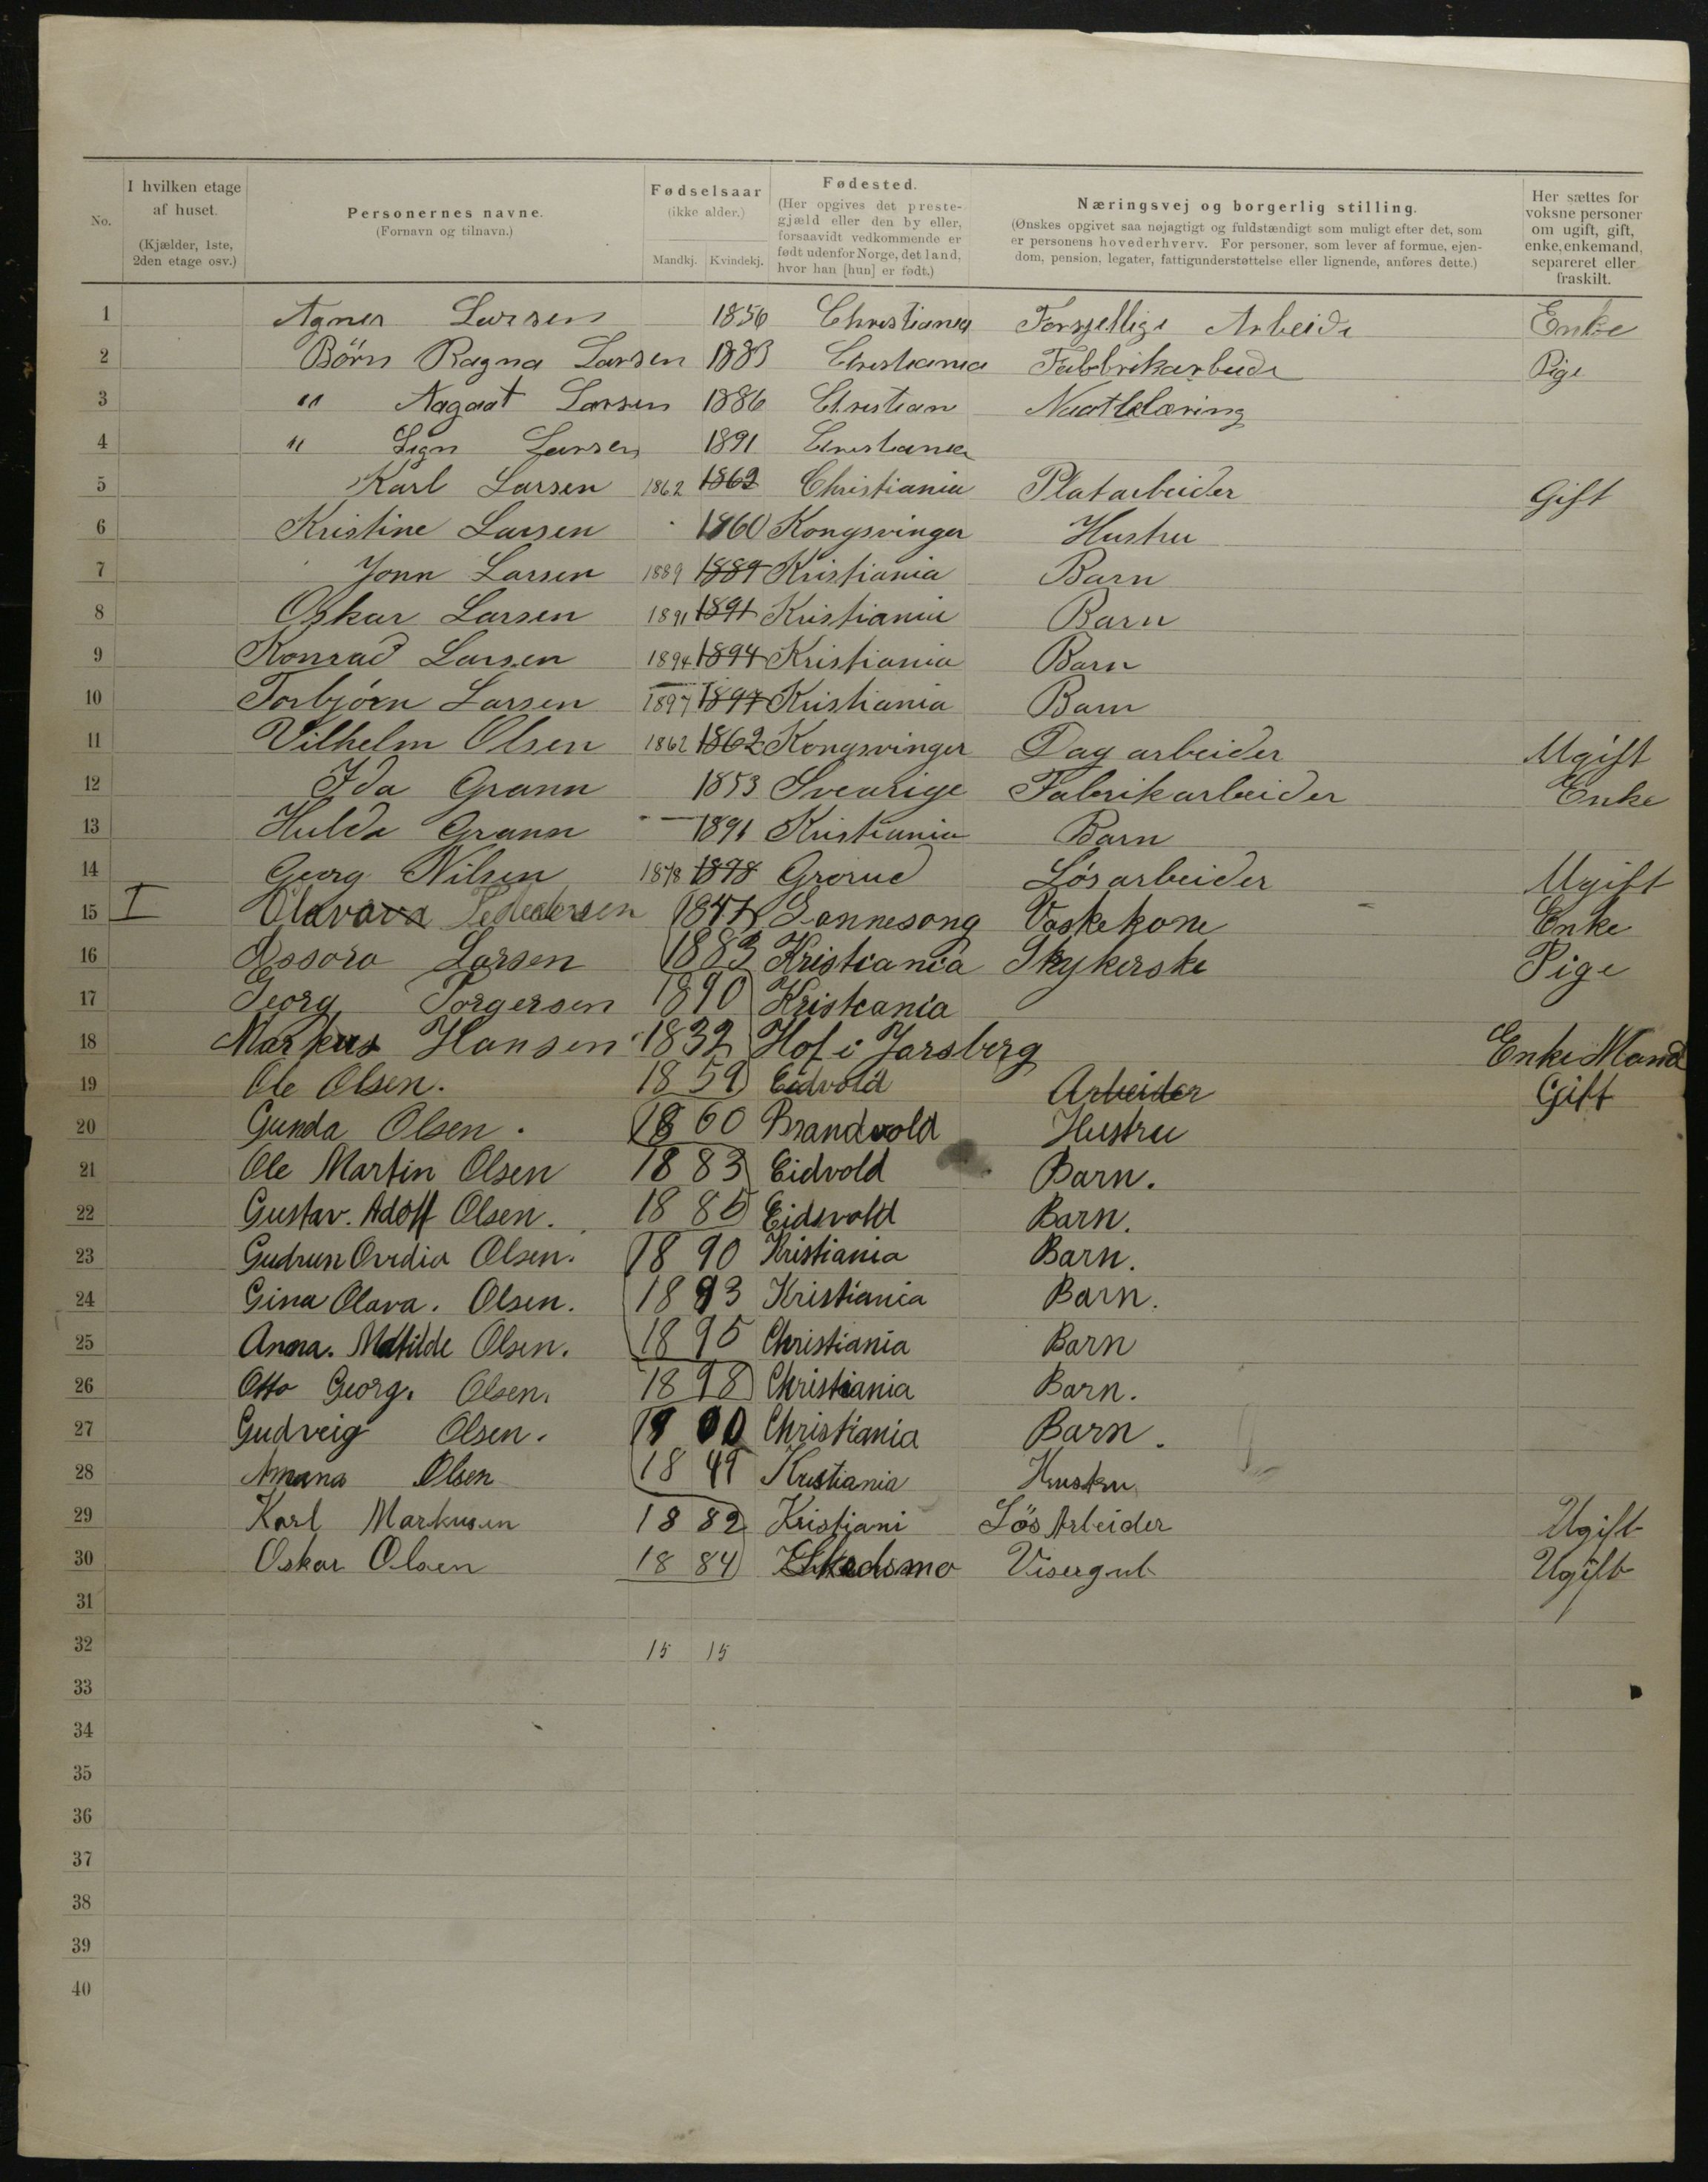 No.
I hvilken etage af huset. (Kjælder, 1ste, 2den etage osv.)
Personernes navne. (Fornavn og tilnavn.)
Fødselsaar (ikke alder.) Mandkj. Kvindekj.
Fødested. (Her opgives det prestegjæld eller den by eller, forsaavidt vedkommende er født udenfor Norge, det land, hvor han [hun] er født.)
Næringsvej og borgerlig stilling. (Ønskes opgivet saa nøjagtigt og fuldstændigt som muligt efter det, som er personens hovederhverv. For personer, som lever af formue, ejendom, pension, legater, fattigunderstøttelse eller lignende, anføres dette.)
Her sættes for voksne personer om ugift, gift, enke, enkemand, separeret eller fraskilt.
1 Agnes Larsen 1856 Christiania Forsjellige Arbeide Enke
2 Børn Ragna Larsen 1883 Christiania Fabbrikarbeide Pige
3 " Aagaat Larsen 1886 Christian
4 " Sign Larsen 1891 Christiania
5 Karl Larsen 1862 1862 Christiania Platarbeider Gift
6 Kristine Larsen 1860 Kongsvinger Hustru
7 Jonn Larsen 1889 1889 Kristiania Barn
8 Oskar Larsen 1891 1891 Kristiania Barn
9 Konrad Larsen 1894 1894 Kristiania Barn
10 Torbjörn Larsen 1897 1897 Kristiania Barn
11 Vilhelm Olsen 1862 1862 Kongsvinger Dag arbeider Ugift
12 Ida Grann 1853 Svearige Fabrikarbeider Enke
13 Hulda Grann 1891 Kristiania Barn
14 Georg Nilsen 1878 1878 Grorud Lösarbeider Ugift
15 I 1847 Vaskekone Enke
16 Assora Larsen 1883 Kristiania Skykerske Pige
17 Georg Torgersen 1890 Kristiania
18 Markus Hansen 1832 Hof i Jarsberg Enke Mand
19 Ole Olsen. 1859 Eidvold Arbeider Gift
20 Gunda Olsen. 1860 Brandvold Hustru
21 Ole Martin Olsen 1883 Eidvold Barn.
22 Gustav. Adolf Olsen. 1885 Eidsvold Barn.
23 Gudrun Ovidia Olsen. 1890 Kristiania Barn.
24 Gina Olava. Olsen. 1893 Kristiania Barn.
25 Anna. Matilde Olsen. 1895 Christiania Barn
26 Otto Georg. Olsen. 1898 Christiania Barn.
27 Gudveig Olsen. 1900 Christiania Barn.
28 Amana Olsen 1849 Kristiania Hustru
29 Karl Markusen 1882 Kristiani Lös Arbeider Ugift
30 Oskar Olsen 1884 Skedsmo Visergut Ugift
31
32 15 15
33
34
35
36
37
38
39
40